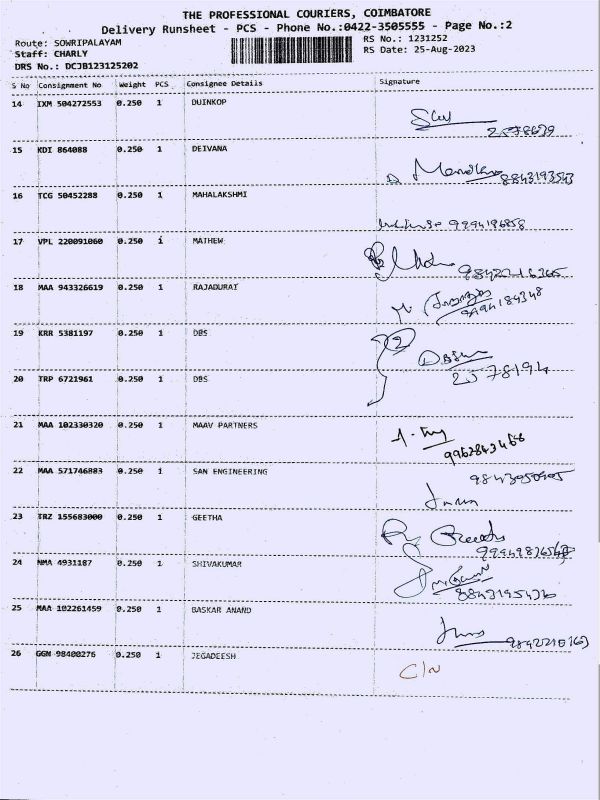 THE PROFESSIONAL COURIERS, COIMBATORE
Delivery Runsheet - PCS - Phone No.:0422-3505555 - Page No.:2
Route: SOWRIPALAYAM
RS No.: 1231252
Staff: CHARLY
RS Date: 25-Aug-2023
DRS No.: DCJB123125202
S No Consignment No Weight PCS Consignee Details Signature
14 IXM 504272553 0.250 1 DUINKOP
15 KDI 864088 0.250 1 DEIVANA
8843193543
16 TCG 50452288 0.250 1 MAHALAKSHMI
9994196858
17 VPL 220091060 0.250 1 MATHEW
18 MAA 943326619 0.250 1 RAJADURAI
9994184348
19 KRR 5381197 0.250 1 DBS
2
20 TRP 6721961 0.250 1 DBS
2578194
21 MAA 102330320 0.250 1 MAAV PARTNERS
9962843468
22 MAA 571746883 0.250 1 SAN ENGINEERING
23 TRZ 155683000 0.250 1 GEETHA
24 NMA 4931187 0.250 1 SHIVAKUMAR
25 MAA 102261459 0.250 1 BASKAR ANAND
26 GGN 98400276 0.250 1 JEGADEESH
C/N